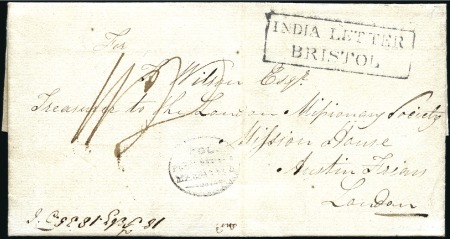 INDIA LETTER
BRISTOL
For
T Wilson Esqr.
Treasurer to the London Missionary Society
Mission House
Austin Frian
London